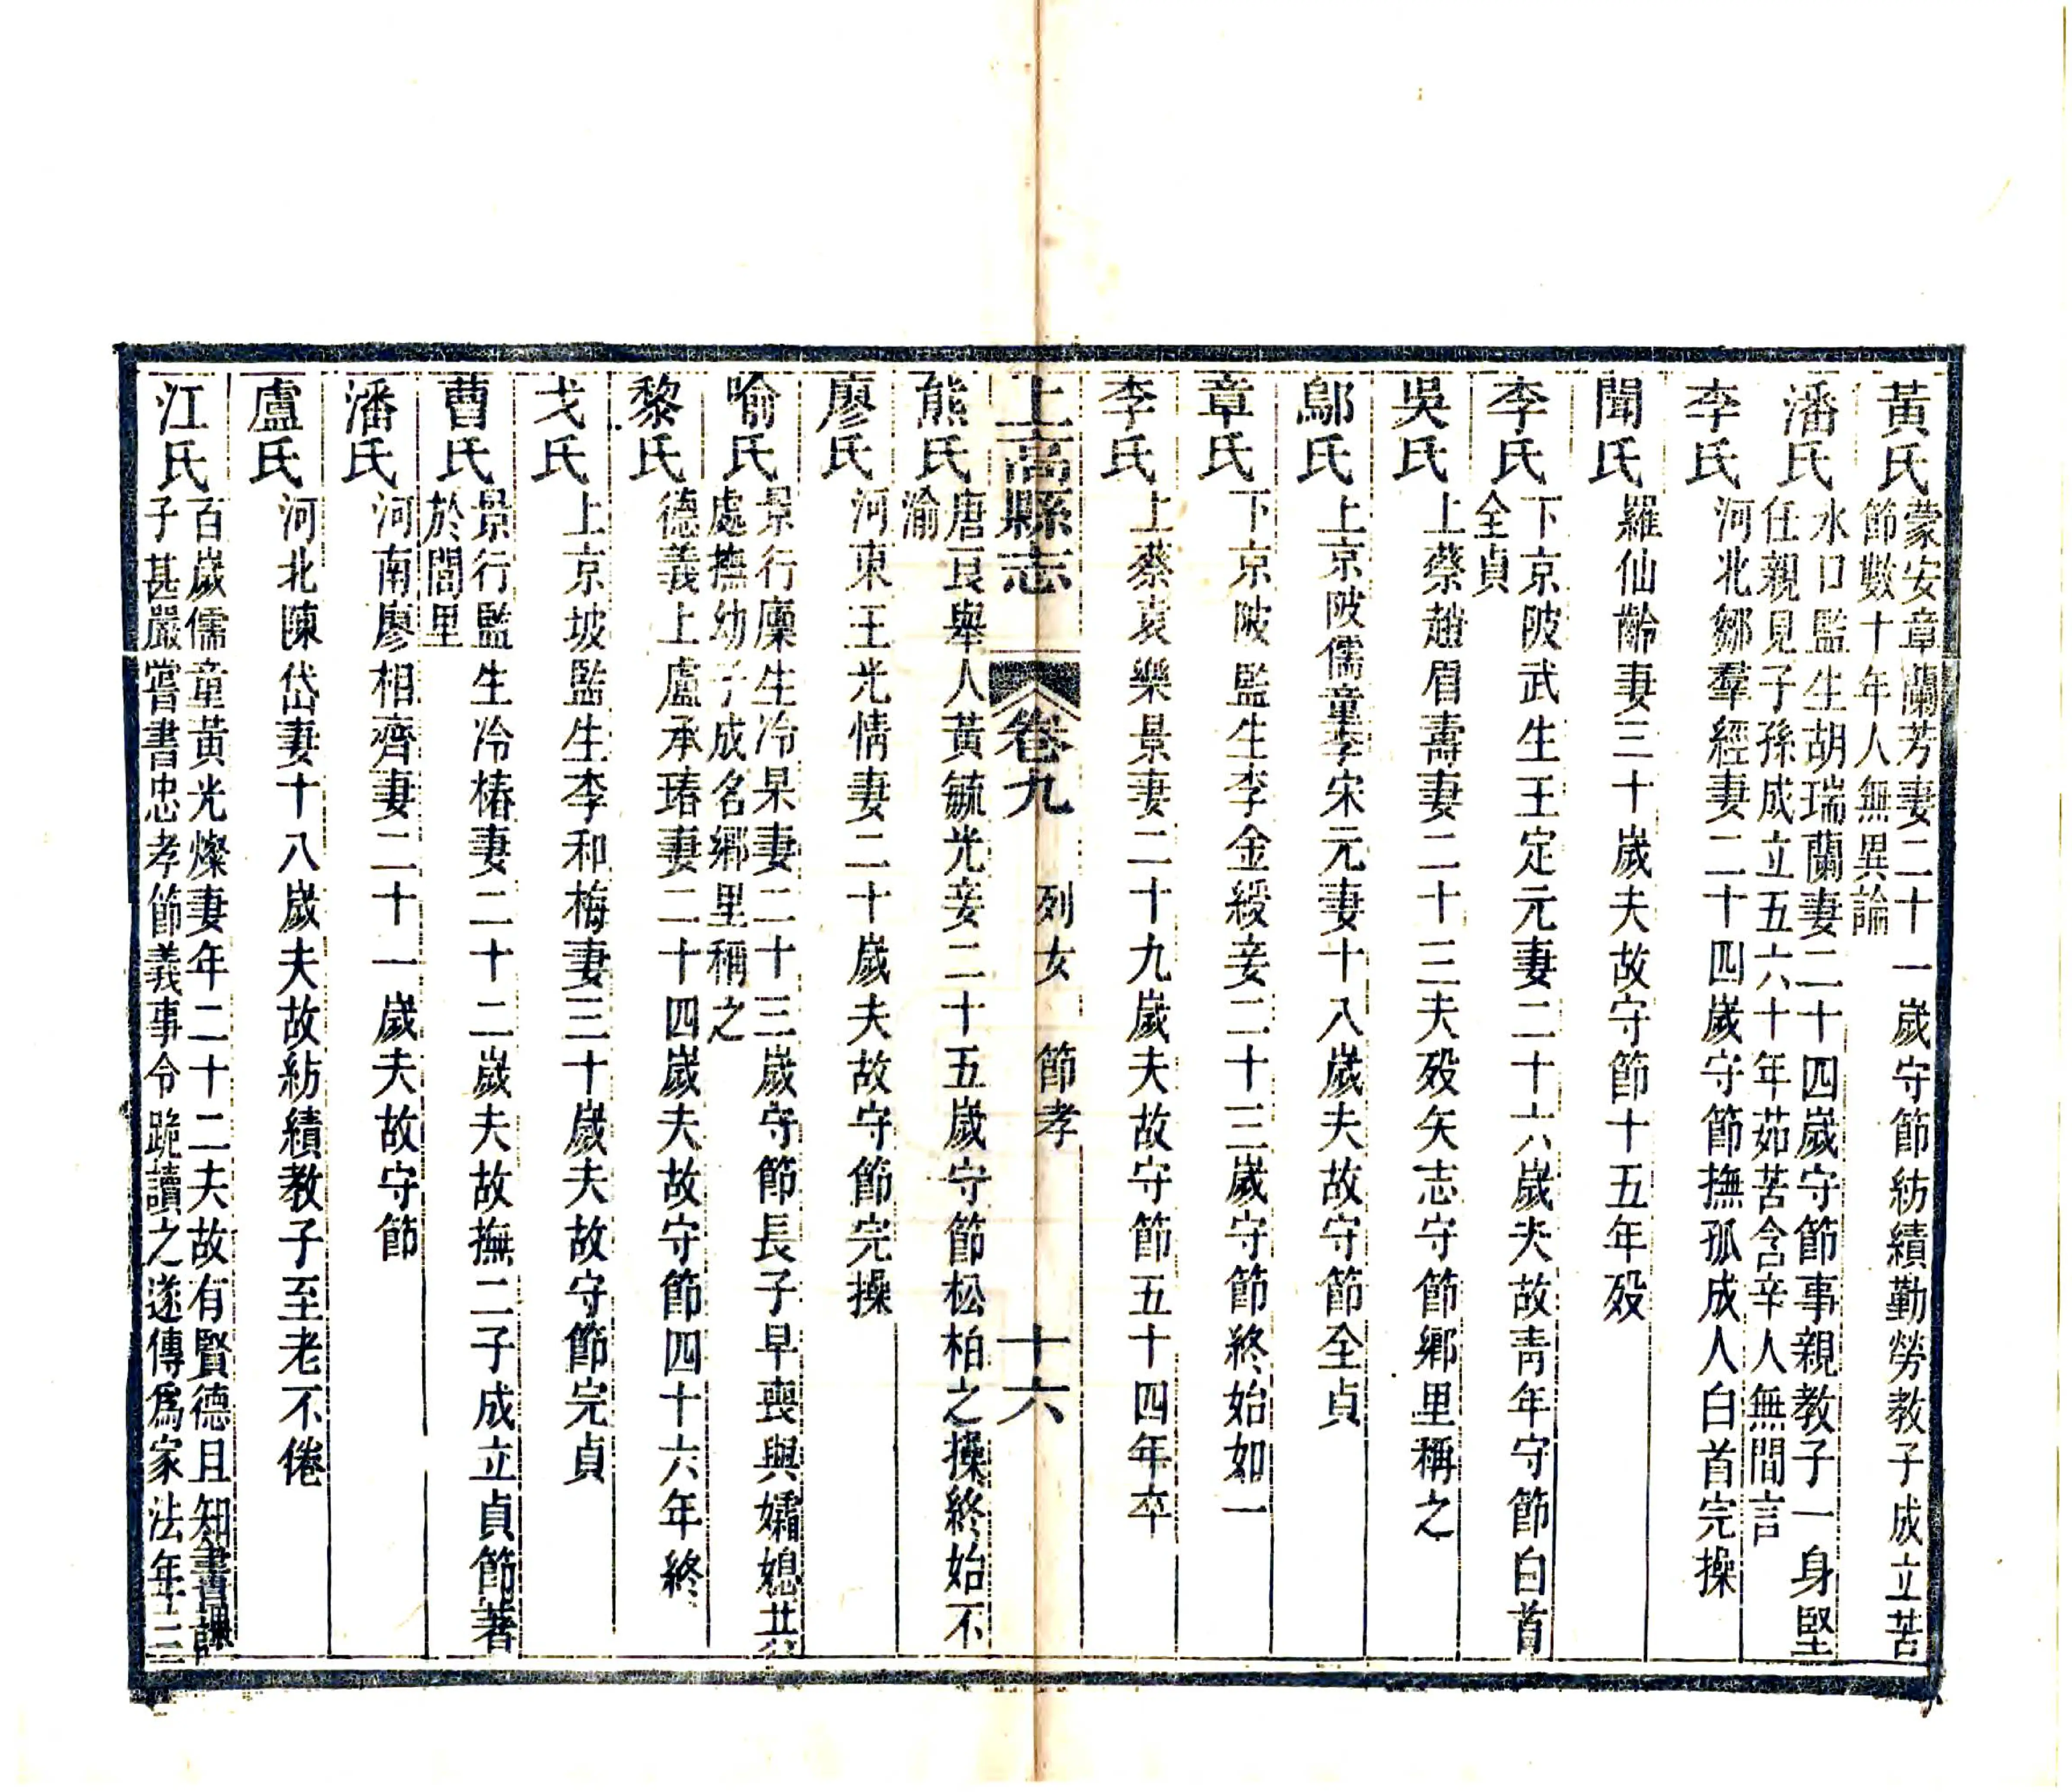 黃氏蒙安章蘭芳妻二十一歲守節紡績勤勞教子成立苦
節數十年人無異論
潘氏水口監生胡瑞蘭妻二十四歲守節事親教子一身堅
任親見子孫成立五六十年茹苦含辛人無間言
李氏河北鄒羣經妻二十四歲守節撫孤成人白首完操
聞氏羅仙齡妻三十歲夫故守節十五年殁
李氏下京陂武生王定元妻二十六歲夫故靑年守節白首
全貞
吳氏上蔡趙眉壽妻二十三夫殁矢志守節鄉里稱之
鄔氏上京陂儒童李宋元妻十八歲夫故守節全貞
章氏下京陂監生李金綬妾二十三歲守節終始如一
李氏上蔡袁樂景妻二十九歲夫故守節五十四年卒
上高縣志 卷九 列女 節孝 十六
熊氏唐艮舉人黃毓光妾二十五歲守節松柏之操終始不
渝
廖氏河東王光情妻二十歲夫故守節完操
喻氏景行廩生冷杲妻二十三歲守節長子早喪與孀媳共
處撫幼子成名鄉里稱之
黎氏德義上盧承瑃妻二十四歲夫故守節四十六年終
戈氏上京坡監生李和梅妻三十歲夫故守節完貞
曹氏景行監生冷椿妻二十二歲夫故撫二子成立貞節著
於閭里
潘氏河南廖相齊妻二十一歲夫故守節
盧氏河北陳岱妻十八歲夫故紡績教子至老不倦
江氏百歲儒童黃光燦妻年二十二夫故有賢德且知書課
子甚嚴嘗書忠孝節義事令跪讀之遂傳爲家法年三